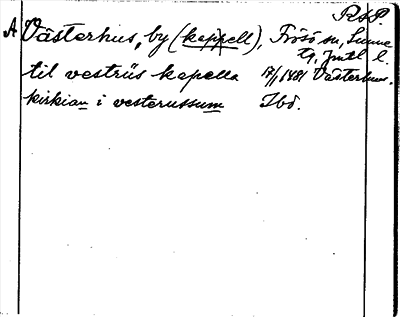 R & P.
A Västerhus, by (kapell), Frösö sn, Sunne
tg, Jmtl l.
til vestriis kapella 17/1 1481 Västerhus.
kirkian i vesterussum Ibd.